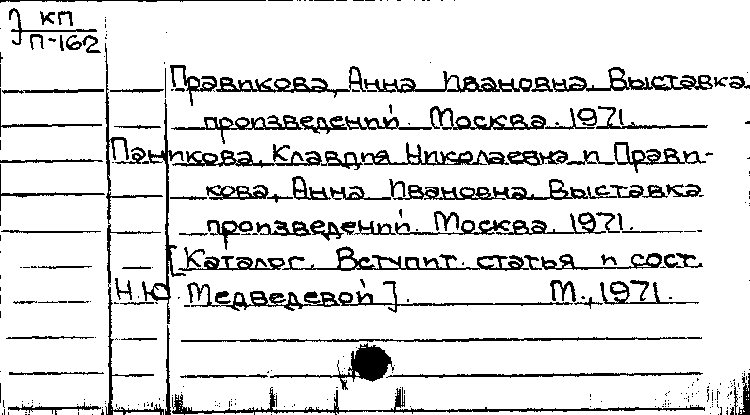 КП
П-162
Правикова, Анна Ивановна. Выставка
произведений. Москва. 1971.
Паникова, Клавдия Николаевна и Прави-
кова, Анна Ивановна. Выставка
произведений. Москва. 1971.
[Каталог. Вступит. статья и сост.
Н.Ю. Медведевой]. М., 1971.